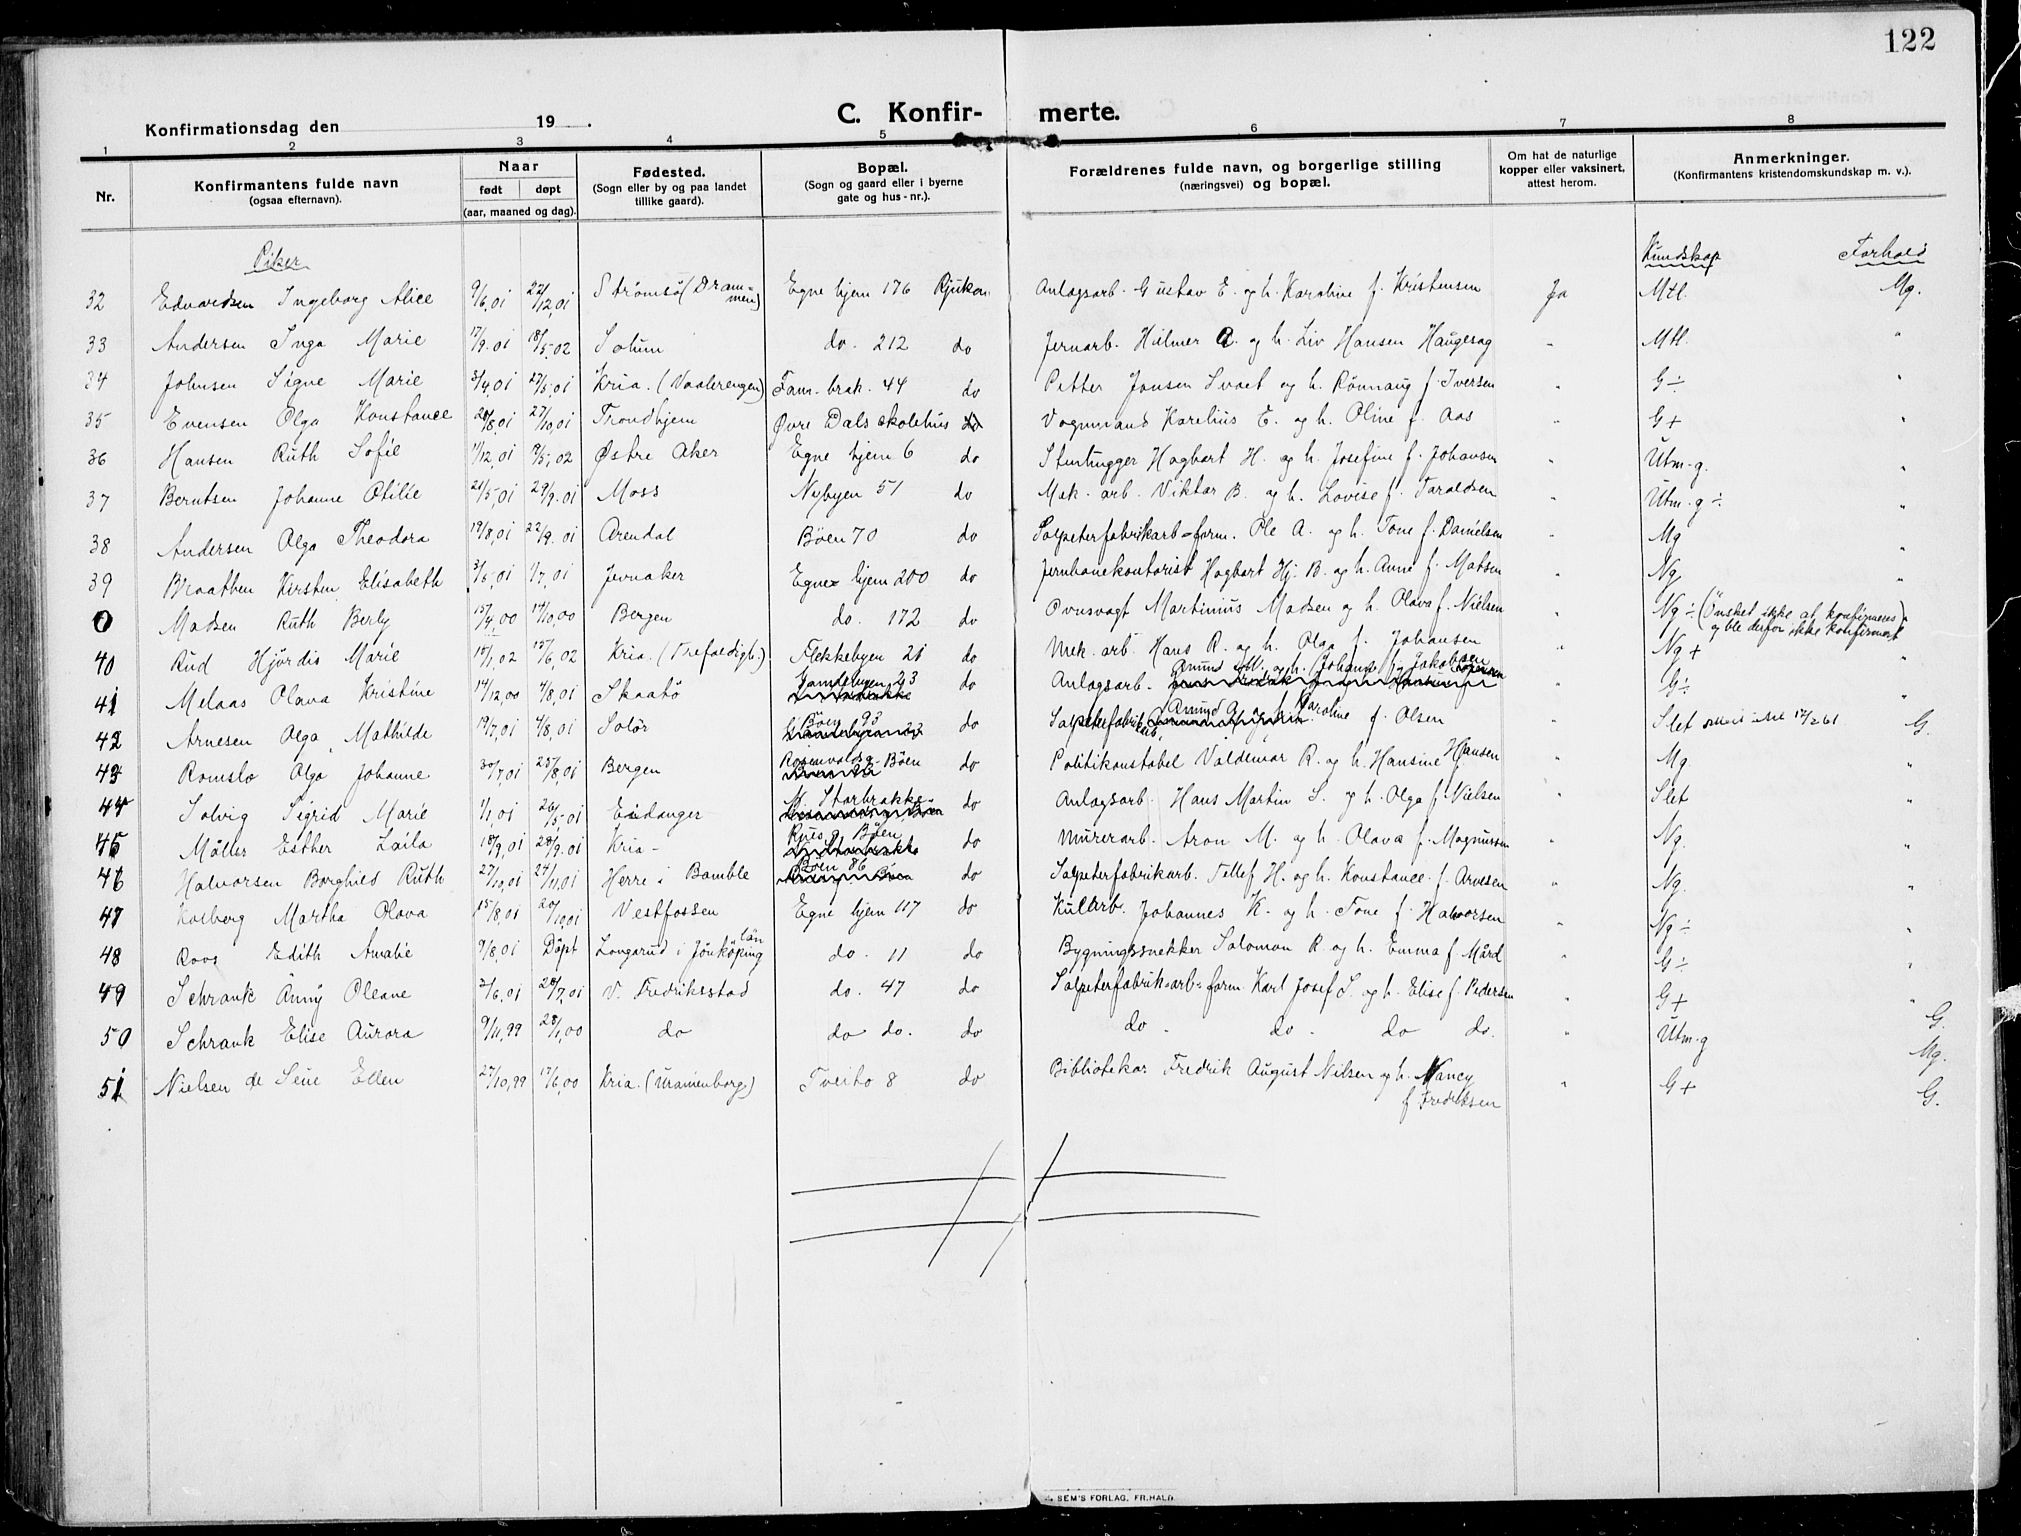 122
Konfirmationsdag den 19 .
C. Konfir- merte.
1 2 3 4 5 6 7 8
Nr.
Konfirmantens fulde navn
(ogsaa efternavn).
Naar
født døpt
(aar, maaned og dag).
Fødested.
(Sogn eller by og paa landet
tillike gaard).
Bopæl.
(Sogn og gaard eller i byerne
gate og hus-nr.).
Forældrenes fulde navn, og borgerlige stilling
(næringsvei) og bopæl.
Om hat de naturlige
kopper eller vaksinert,
attest herom.
Anmerkninger.
(Konfirmantens kristendomskundskap m. v.).
Piker Kundskap Forhold
32 Edvardsen Ingeborg Alice 9/6,01 22/12,01 Strömsö (Drammen) Egne hjem 176 Rjukan Anlagsarb. Gustav E. og h. Karoline f. Kristensen Ja Mtl. Mg.
33 Andersen Inga Marie 17/9.01 18/5.02 Solum do. 212 do Jernarb. Hilmer A. og h. Liv Hansen Haugesag " Mtl. "
34 Johnsen Signe Marie 3/4,01 27/5,01 Kria. (Vaalerengen) Fam. brak. 44 do Petter Jonsen Svaet og h. Rönnaug f. Iversen " G÷ "
35 Evensen Olga Konstance 28/8,01 27/10,01 Trondhjem Øvre Dals skolehus do Vognmand Karelius E. og h. Oline f. Aas " G+ "
36 Hansen Ruth Sofie 11/12,01 /5,02 Østre Aker Egne hjem 6 do Stenhugger Hagbart H. og h. Josefine f. Johansen " Utm-g. "
37 Berntsen Johanne Otilie 21/5,01 29/9.01 Moss Nybyen 51 do Mek. arb. Viktor B. og h. Lovise f. Taraldsen " Utm-g÷ "
38 Andersen Olga Theodora 19/8,01 22/9.01 Arendal Böen 70 do Salpeterfabrikarb=form. Ole A. og h. Tone f. Danielsen " Mg "
39 Braathen Kirsten Elisabeth 3/5,01 1/7,01 Jevnaker Egne hjem 200 do Jernbanekontorist Hagbart Hj. B. og h. Anne f. Matsen " Ng "
0 Madsen Ruth Berly 15/4,00 14/10,00 Bergen do. 172 do Ovnsvagt Martinius Madsen og h. Olava f. Nielsen " Ng÷ (Ønsket ikke at konfirmeres
og ble derfor ikke konfirmert)
40 Rud Hjördis Marie 15/1,02 15/6,02 Kria. (Trefoldigh.) Flekkebyen 21 do Mek. arb. Hans R. og h. Olga f. Johansen " Ng+ "
41 Melaas Olava Kristine 14/12,00 4/8,01 Skaatö Gamlebyen 23 do Anlagsarb. Anund M. og h. Johanne f. Jakobsen " G÷ "
42 Arnesen Olga Mathilde 19/7,01 4/8,01 Solör Böen 93 do Salpeterfabrikarb. Amund A. og h. Karoline f. Olsen " Slet 17/2 61 G.
43 Romslo Olga Johanne 30/7,01 25/8,01 Bergen Rosenvoldsg. Böen do Politikonstabel Valdemar R. og h. Hansine Hansen " Mg. "
44 Solvig Sigrid Marie 1/1,01 26/5-01 Eidanger M. Storbrakke do Anlagsarb. Hans Martin S. og h. Olga f. Nielsen " Slet "
45 Möller Esther Laila 18/9,01 28/9.01 Kria- Rjus g. Böen do Murerarb. Aron M. og h. Olava f. Magnussen " Ng. "
46 Halvorsen Borghild Ruth 27/10,01 24/11,01 Herre i Bamble Böen 86 do Salpeterfabrikarb. Tellef H. og h. Konstance f. Arvesen " Ng. "
47 Kolberg Martha Olava 15/8,01 20/10,01 Vestfossen Egne hjem 117 do Kullarb. Johannes K. og h. Tone f. Halvorsen " Ng÷ "
48 Roos Edith Amalie 9/8,01 Döpt Longarud i Jönköping län do. 11 do Bygningssnekker Salomon R. og h. Emma f. Mård " G÷ "
49 Schrank Anny Oleane 2/6,01 28/7,01 V. Fredriksstad do. 47 do Salpeterfabrik-arb=form. Karl Josef S. og h. Elise f. Pedersen " G+ "
50 Schrank Elise Aurora 9/11,99 28/1,00 do do do. do do. do. do do. " Utm-g G.
Mg.
51 Nielsen de Seue Ellen 27/10,99 17/6,00 Kria. (Uranienborg) Tveito 8 do Bibliotekar Fredrik August Nilsen og h. Nancy
f Fredriksen " G+ G.
SEM'S FORLAG, FR.HALD.